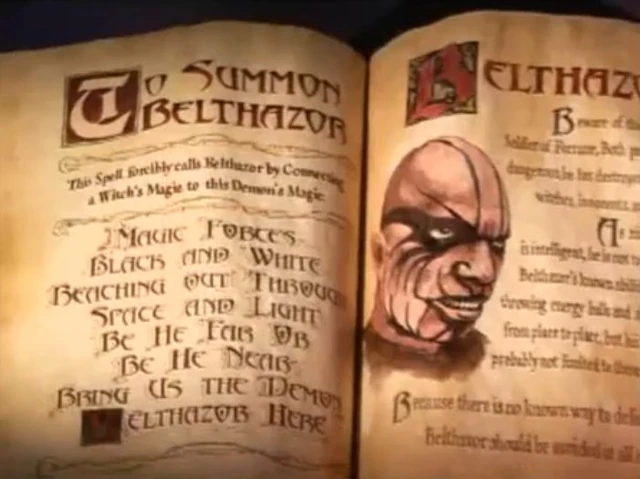 To Summon
Belthazor
This Spell forcibly calls Belthazor by Connecting
a Witch's Magic to this Demon's Magic.
Magic Forces
Black and White
Reaching out Through
Space and Light
Be He Far Or
Be He Near
Bring Us the Demon
Belthazor Here
Belthazo
Beware of
Soldier of Fortune, Both
dangerous, he has destroyed
witches, innocents,
As
is intelligent, he is not to
Belthazor's known
throwing energy balls and
from place to place, but his
probably not limited to these
Because there is no known way to
Belthazor should be avoided at all